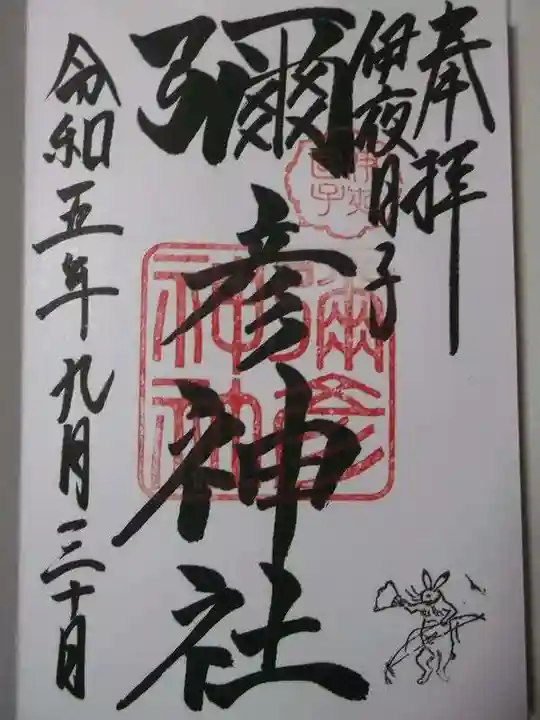 奉拝
伊夜日子
彌彦神社
令和五年九月三十日
伊夜日子
彌彦神社